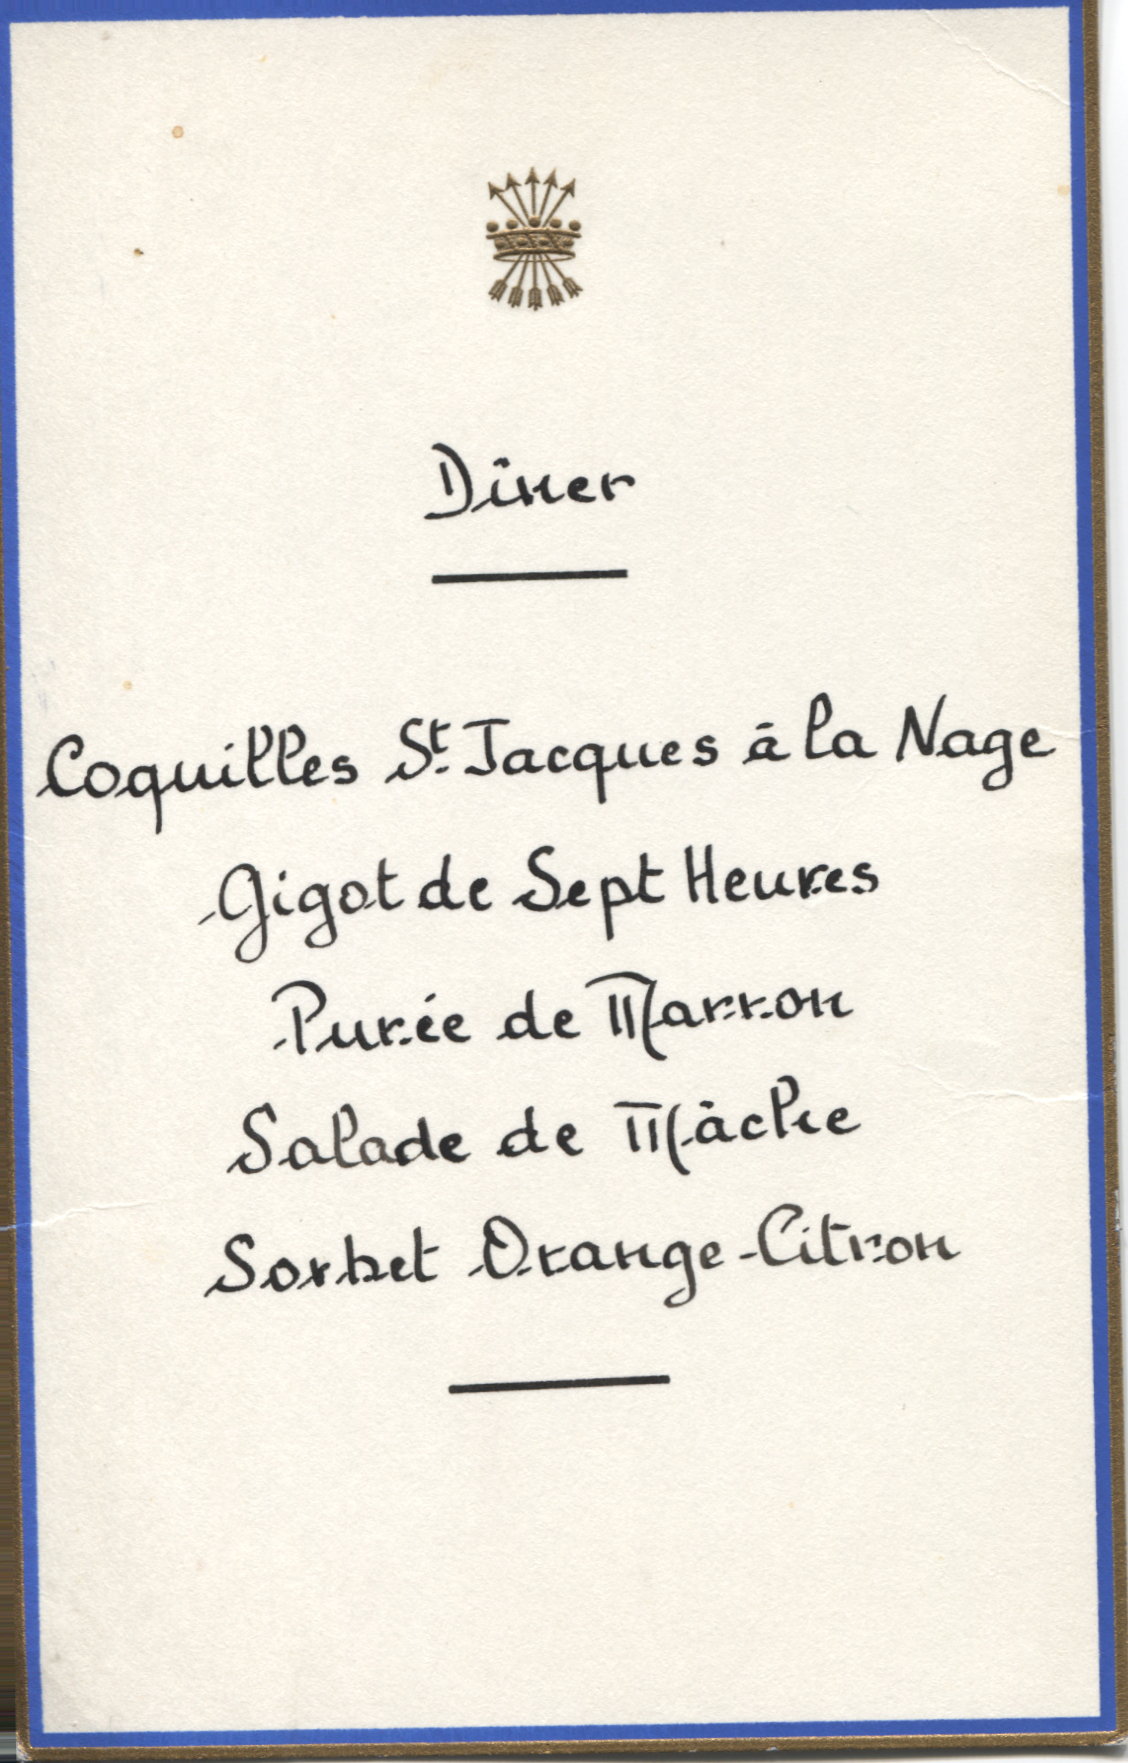 Dîner
Coquilles St. Jacques à la Nage
Gigot de Sept Heures
Purée de Marron
Salade de Mâche
Sorbet Orange-Citron